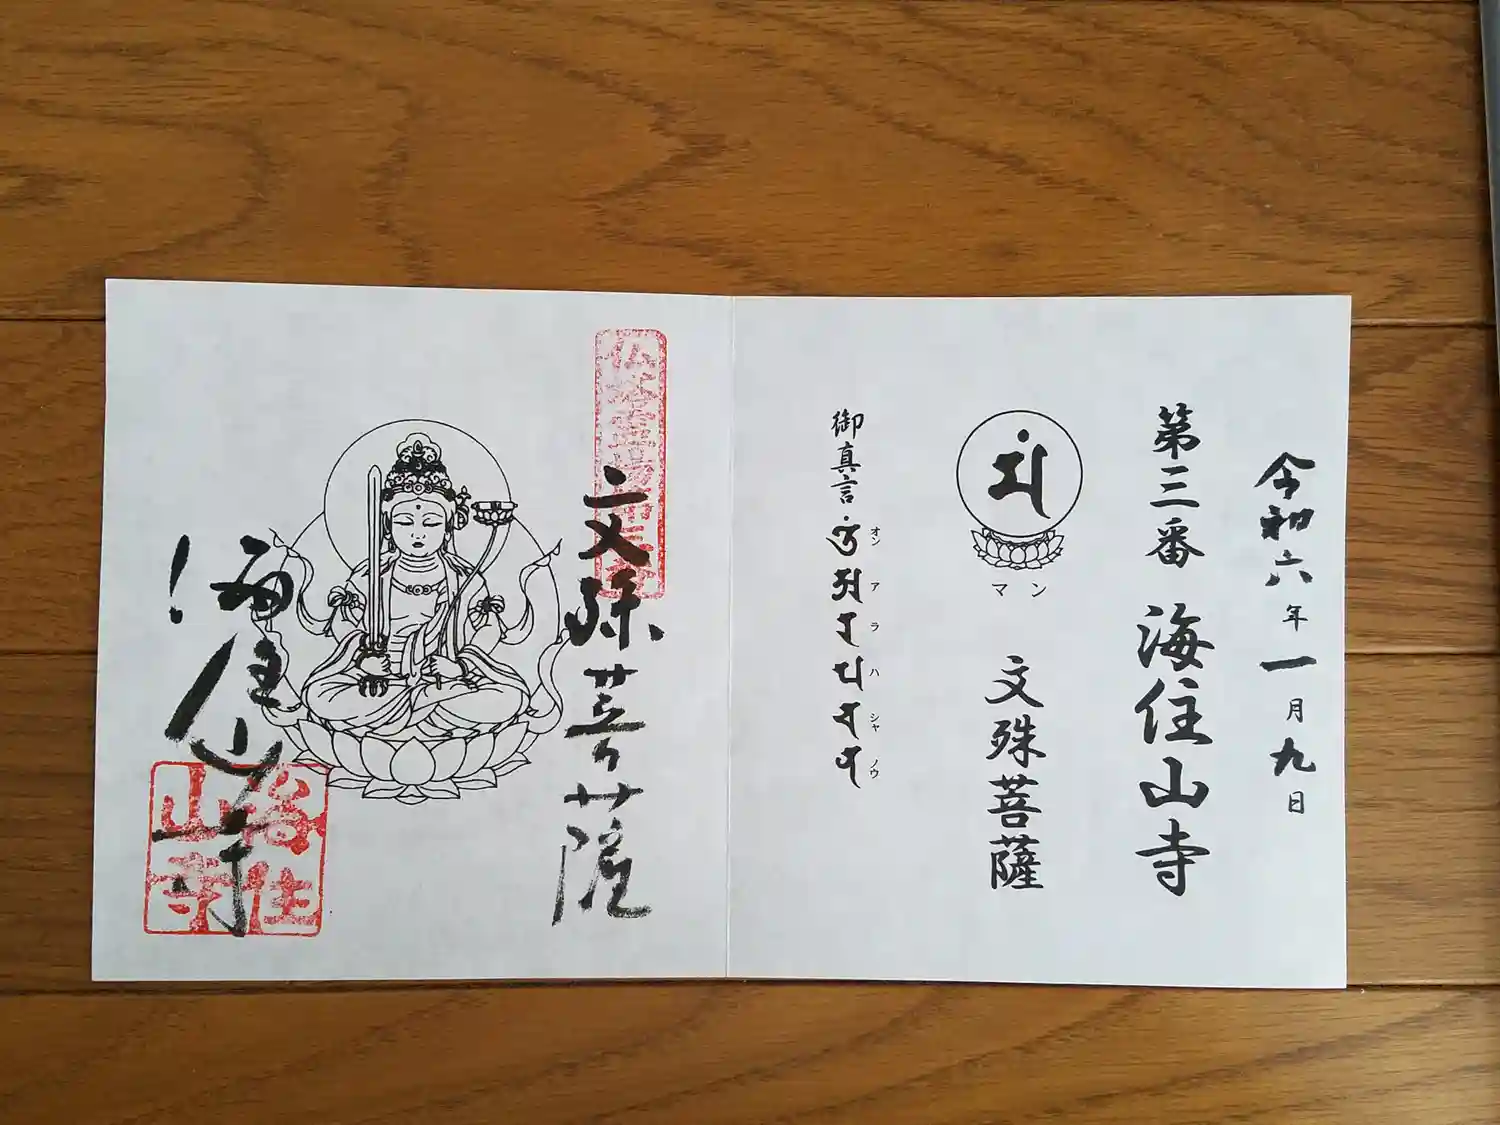 令和六年一月九日
第三番 海住山寺
マン
文殊菩薩
御真言・
オン ア ラ ハ シャ ノウ
文殊菩薩
海住山寺
海住山寺